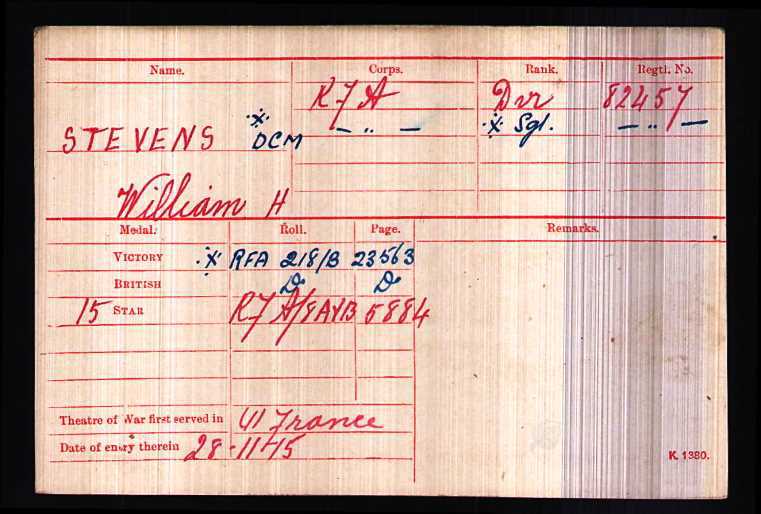 Name. Corps. Rank. Regtl. No.
RFA Dvr 82457
STEVENS ·X· DCM — " — ·X· Sgt. — " —
William H
Medal. Roll. Page. Remarks.
VICTORY ·X· RFA 218/B 23563
BRITISH Do Do
15 STAR RFA/8A&B 5884
Theatre of War first served in (1) France
Date of entry therein 28-11-15
K. 1380.